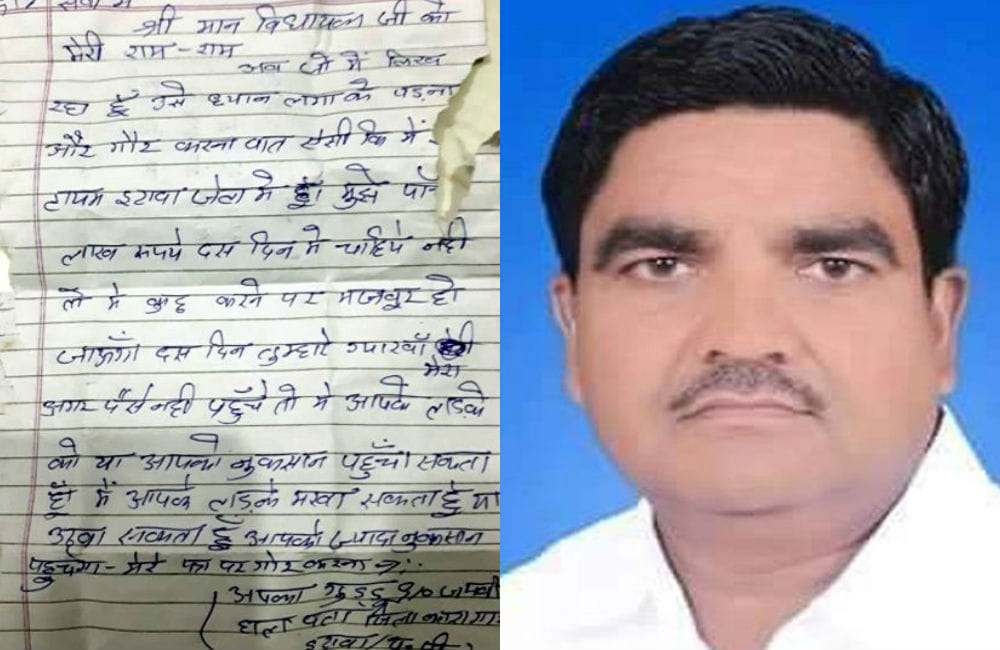 सेवा में
श्री मान विधायक जी को
मेरी राम-राम
अब जो में लिख
रहा हूँ उसे ध्यान लगा के पड़ना
और गौर करना बात ऐसी कि में
टायम इटावा जेल मे हूँ। मुझे
लाख रूपये दस दिन मे चाहिये नही
तो मे कुछ करने पर मजबूर हो
जाऊँगा दस दिन तुम्हारे ग्यारवाँ मेरा
अगर पैसे नही पहुँचे तो मे आपके लड़के
को या आपको नुकसान पहुँचा सकता
हूँ मैं आपके लड़के मरवा सकता हूँ या
उठवा सकता हूँ आपको ज्यादा नुकसान
पहुचेगा - मेरे पर गोर करना
अपका गुड्डू S/o
हाल पता जिला कारागार
इटावा